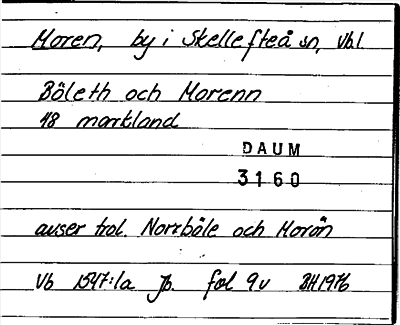 Moren, by i Skellefteå sn, Vbl.
Böleth och Morenn
18 markland
DAUM
3160
avser trol. Norrböle och Morön
Vb 1547:1a Jb. fol 9v BH1976